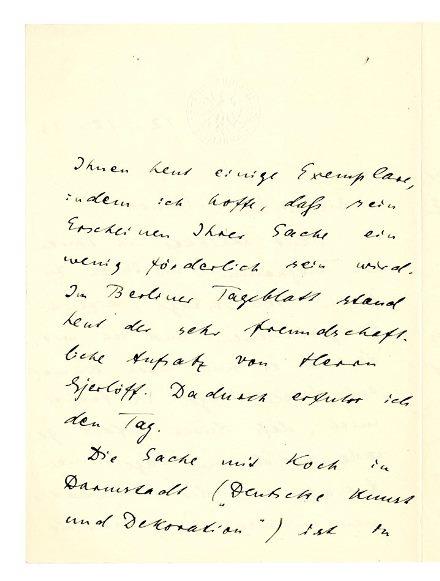 Ihnen heut einige Exemplare,
indem ich hoffe, daß sein
Erscheinen Ihrer Sache ein
wenig förderlich sein wird.
Im Berliner Tageblatt stand
heut der sehr freundschaft-
liche Aufsatz von Herrn
Gjerlöff. Dadurch erfuhr ich
den Tag.
Die Sache mit Koch in
Darmstadt („Deutsche Kunst
und Dekoration“) ist in